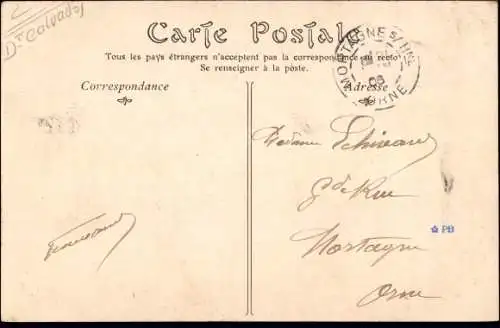 Dt Calvados
Carte Postale
Tous les pays étrangers n'acceptent pas la correspondance au recto
Se renseigner à la poste.
Correspondance
Adresse
MORTAGNE S/HNE
08
ORNE
Madame
Gde Rue
Mortagne
Orne
PB